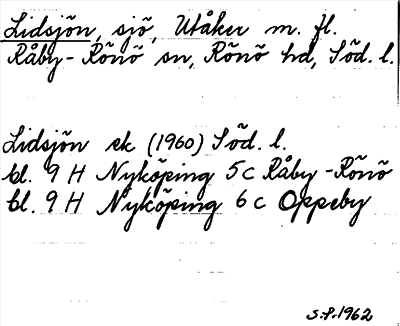 Lidsjön, sjö, Utåker m. fl.
Råby-Rönö sn, Rönö hd, Söd. l.
Lidsjön ek (1960) Söd. l.
bl. 9 H Nyköping 5c Råby-Rönö
bl. 9 H Nyköping 6c Oppeby
S.P. 1962